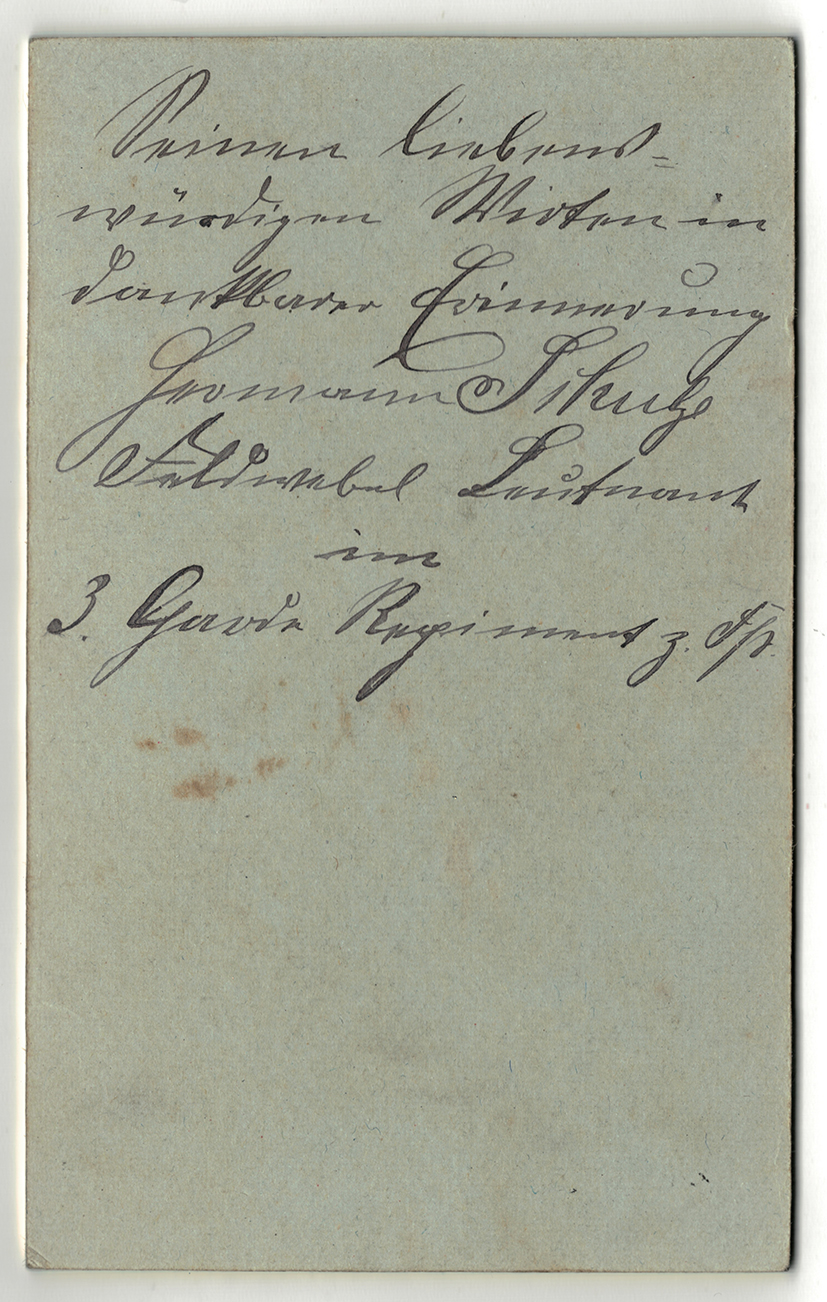 Seinen liebens=
würdigen Wirten in
dankbarer Erinnerung
Hermann
Feldwebel Leutnant
im
3. Garde Regiment z. Fß.